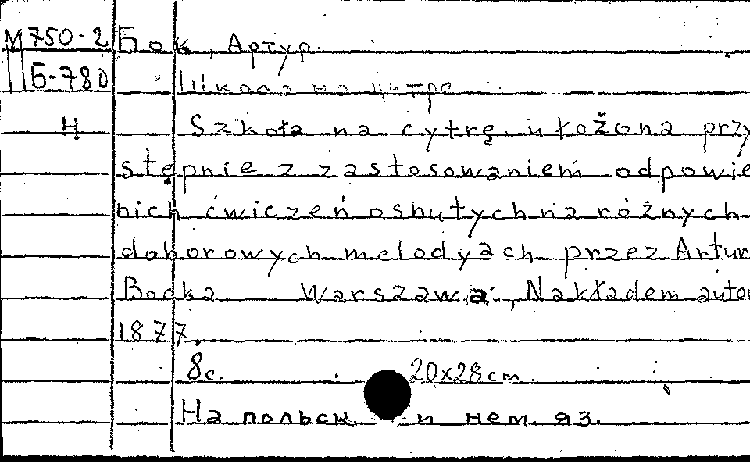 М 750-2 Бок, Артур.
Б-780 Школа на цитре
Н Szkoła na cytrę ułożona przy
stępnie z zastosowaniem odpowie
nich ćwiczeń osnutych na różnych
doborowych melodyach przez Artur
Bocka Warszawa, Nakładem autor
1877.
8с. 20x28cm
На польск и нем. яз.